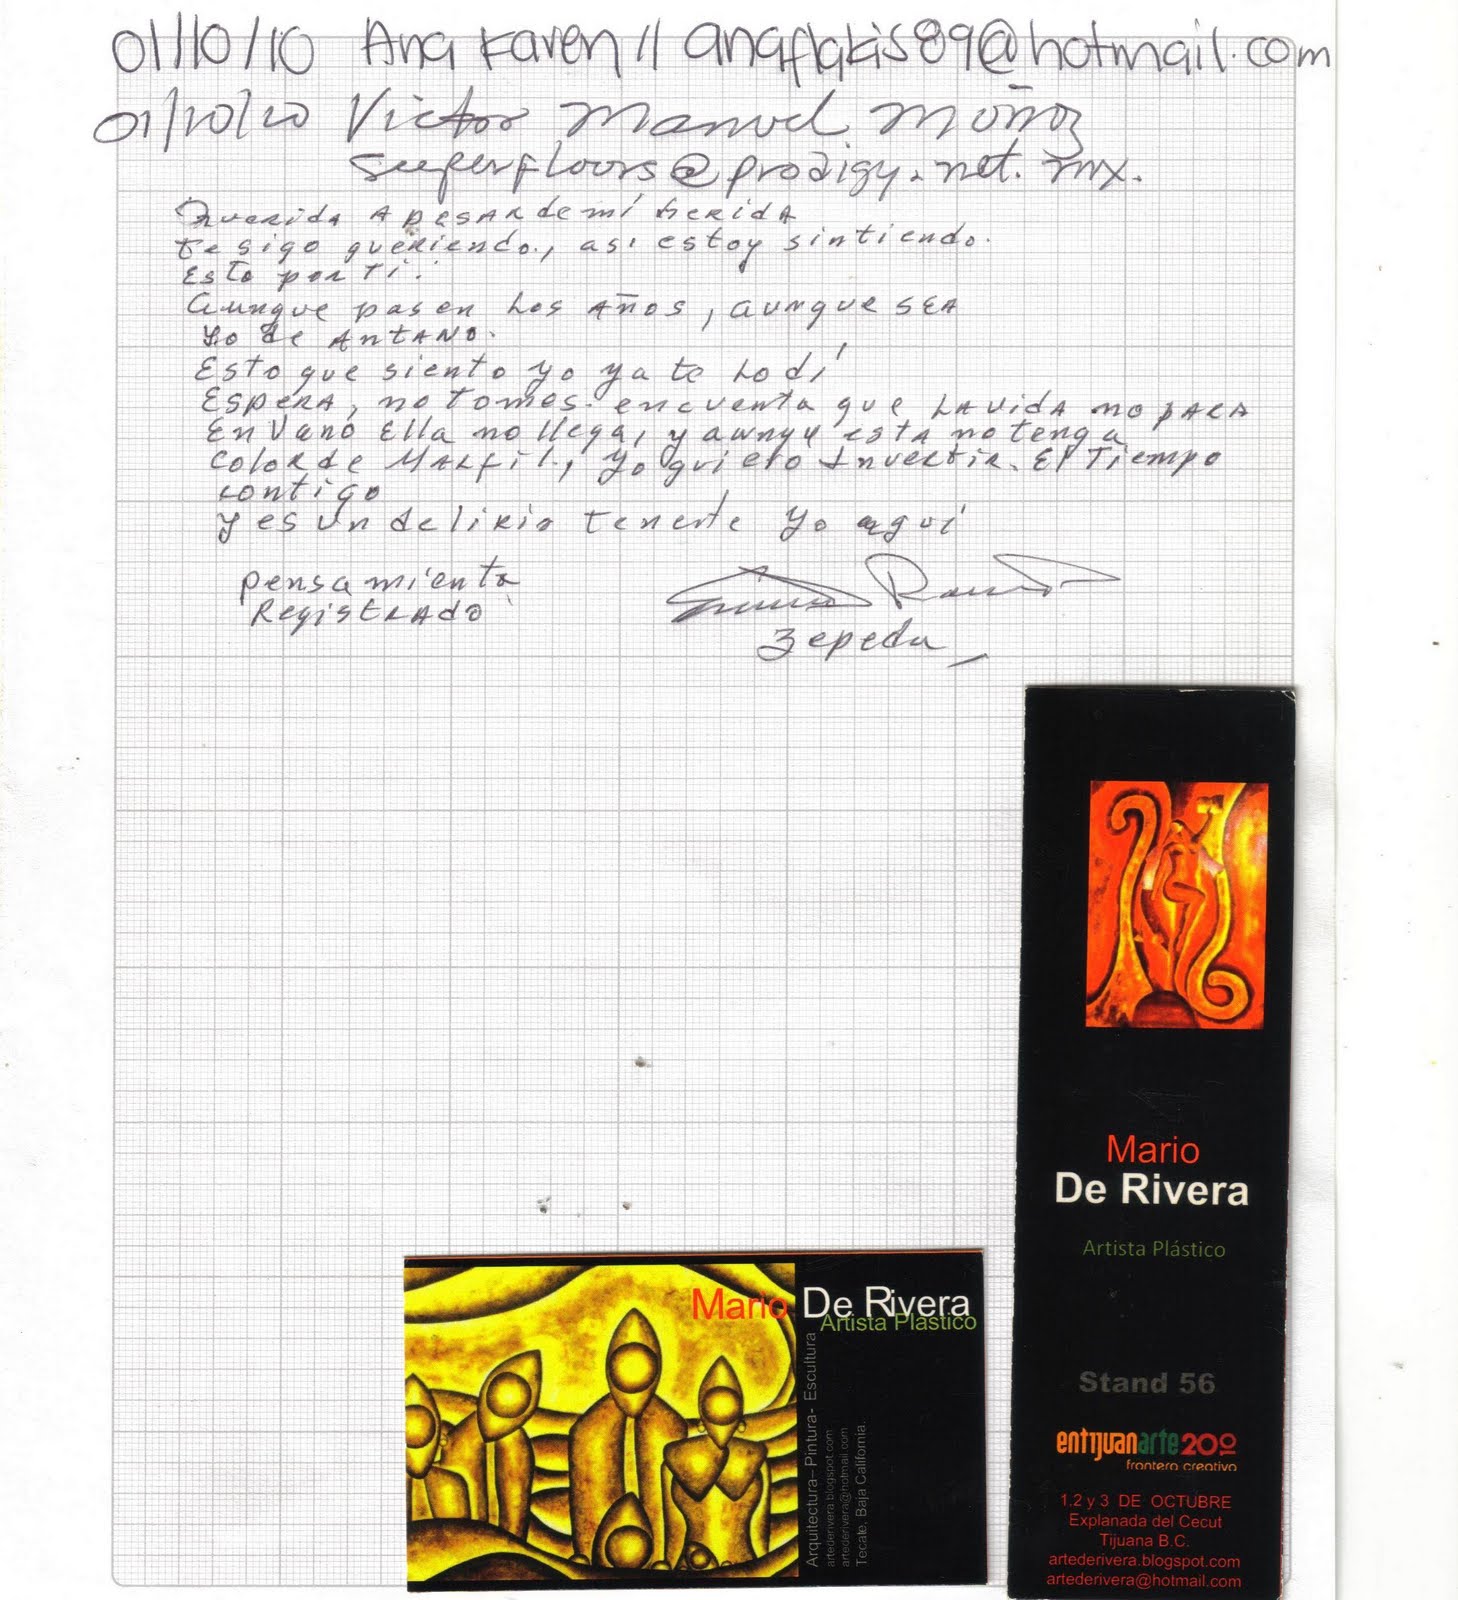 01/10/10 Ana Karen // anaflakis89@hotmail.com
01/10/10 Victor Manuel Muñoz
superfloors@prodigy.net.mx.
Querida A pesar de mi herida
te sigo queriendo., asi estoy sintiendo.
Esto por ti.
aunque pasen Los AÑOS, aunque SEA
Lo de ANtANO.
Esto que siento yo ya te Lo dí
ESpERA, no tomes. en cuenta que LA VIDA no pARA
En Vano Ella no llega, y aunque esta no tenga
Color de MARfil., yo quiero Invertir. El Tiempo
contigo
y es un delirio tenerte yo aquí
pensamiento
Registrado
Zepeda
Mario
De Rivera
Artista Plástico
Stand 56
entijuanarte2010
frontera creativa
1,2 y 3 DE OCTUBRE
Explanada del Cecut
Tijuana B.C.
artederivera.blogspot.com
artederivera@hotmail.com
Mario De Rivera
Artista Plástico
Arquitectura– Pintura- Escultura
artederivera.blogspot.com
artederivera@hotmail.com
Tecate, Baja California.